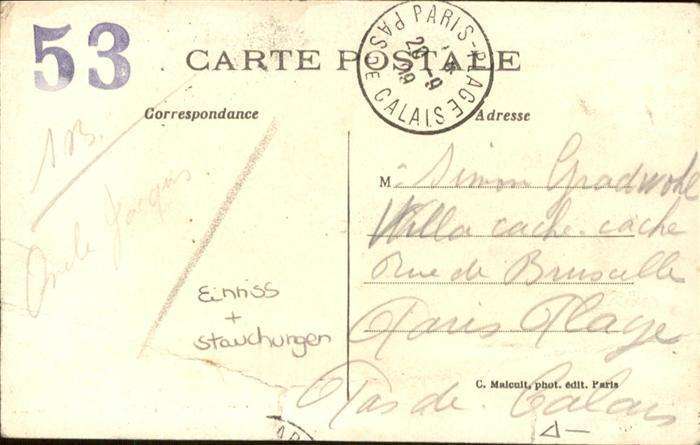 53
CARTE POSTALE
PARIS-PLAGE
20 -9
09
PAS DE CALAIS
Correspondance
Adresse
Oncle Jacques
Einriss
+
Stauchungen
M Simon Gradwohl
Villa cache-cache
Rue de Bruxelle
Paris Plage
Pas de Calais
C. Malcuit, phot. édit. Paris